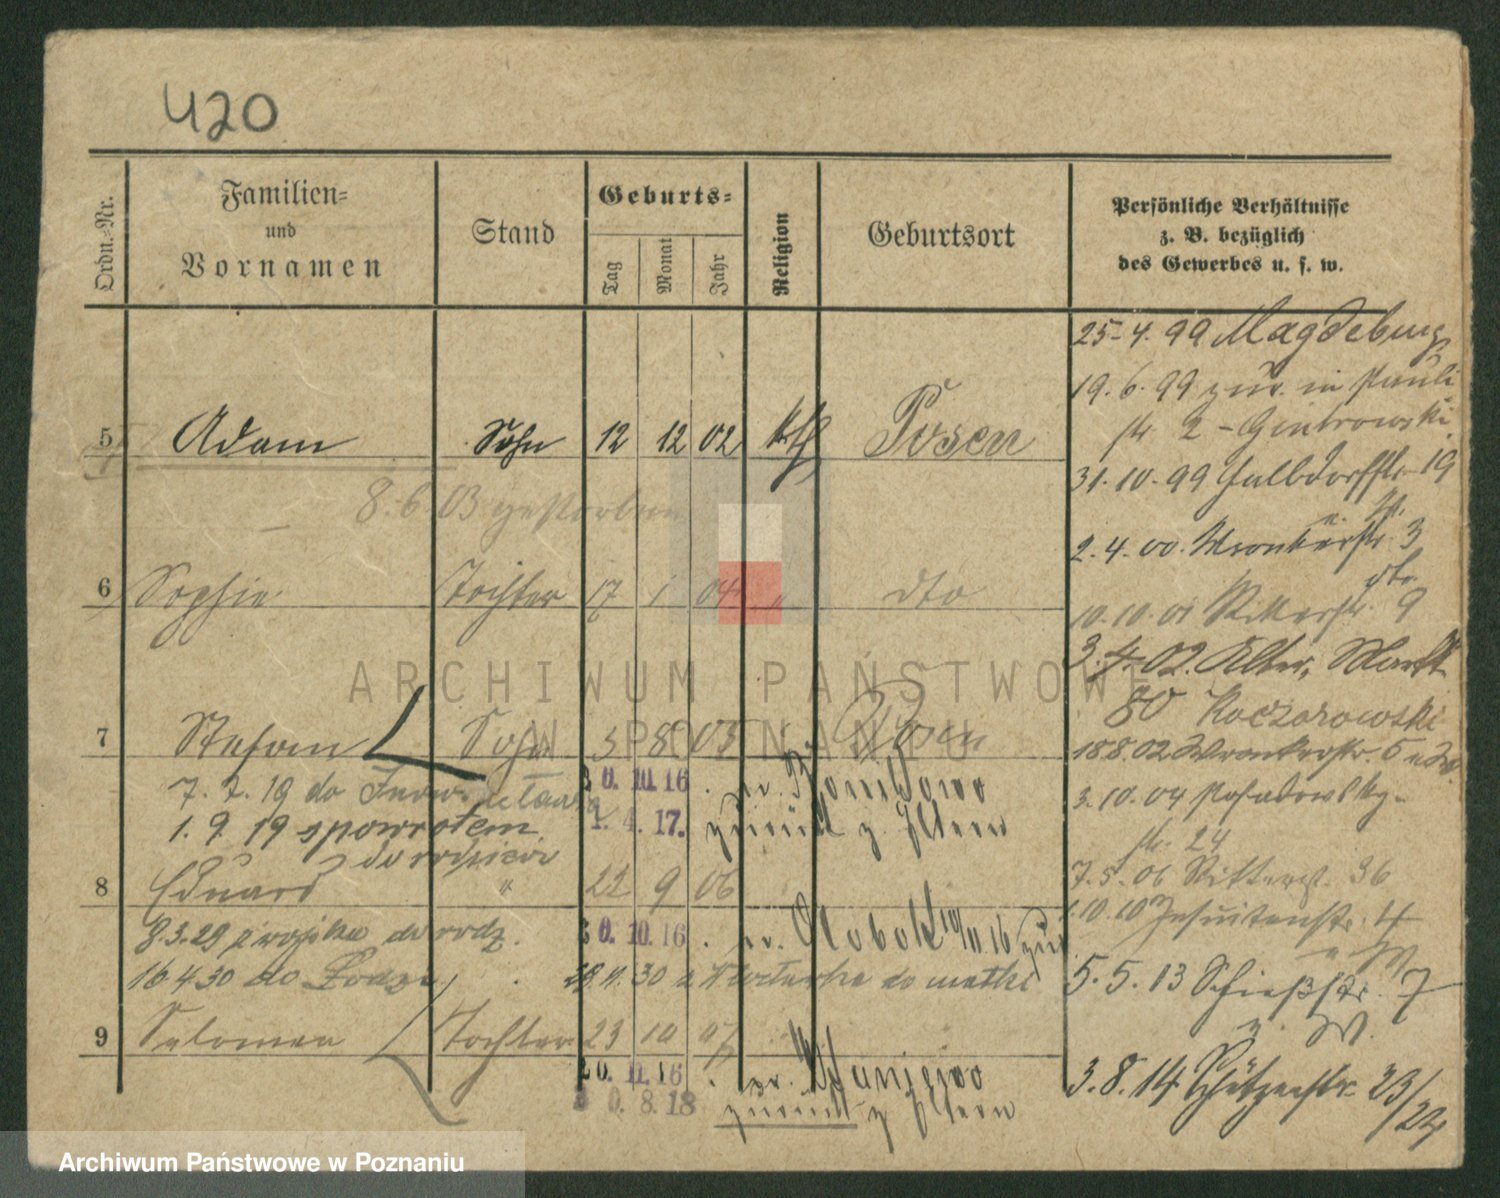 420
Ordn.-Nr.
Familien-
und
Vornamen
Stand
Geburts-
Tag
Monat
Jahr
Religion
Geburtsort
Persönliche Verhältnisse
z. B. bezüglich
des Gewerbes u. s. w.
25-4. 99 Magdeburg
19. 6. 99 zur. in Pauli
str 2 - Gintrowski
5 Adam Sohn 12 12 02 kth Posen
31-10-99 Halbdorffstr 19
8.6.03 gestorben
2.4.00. Wronkerstr. 3
6 Sophie Tochter 17 1 04 " dto
10.10.01 Ritterstr. 9
3.4.02. Alter, Markt
80 Koczorowski
7 Stefan Sohn 5 8 05 Posen
18 8.02 Wronkerstr. 5
7. 7. 19 do
30. 10. 16
3.10.04
1. 9. 19 spowrotem
1. 4. 17. zurück z. Eltern
do rodziców
str. 24
8 Eduard " 22 9 06
7.5.06 Ritterst. 36
1.10.10 Jesuitenstr. 4
8.3.29 z wojska do rodz.
30. 10. 16 . n. Olobok
16 4 30 do Łodzi
30 do matki
5.5.13 Schießstr. 7
9 Salomea Tochter 23 10 07
20. 11. 16 . n.
3.8.14 Schützenstr. 23/24
30. 8. 18 zurück z Eltern
ARCHIWUM PAŃSTWOWE
W POZNANIU
Archiwum Państwowe w Poznaniu